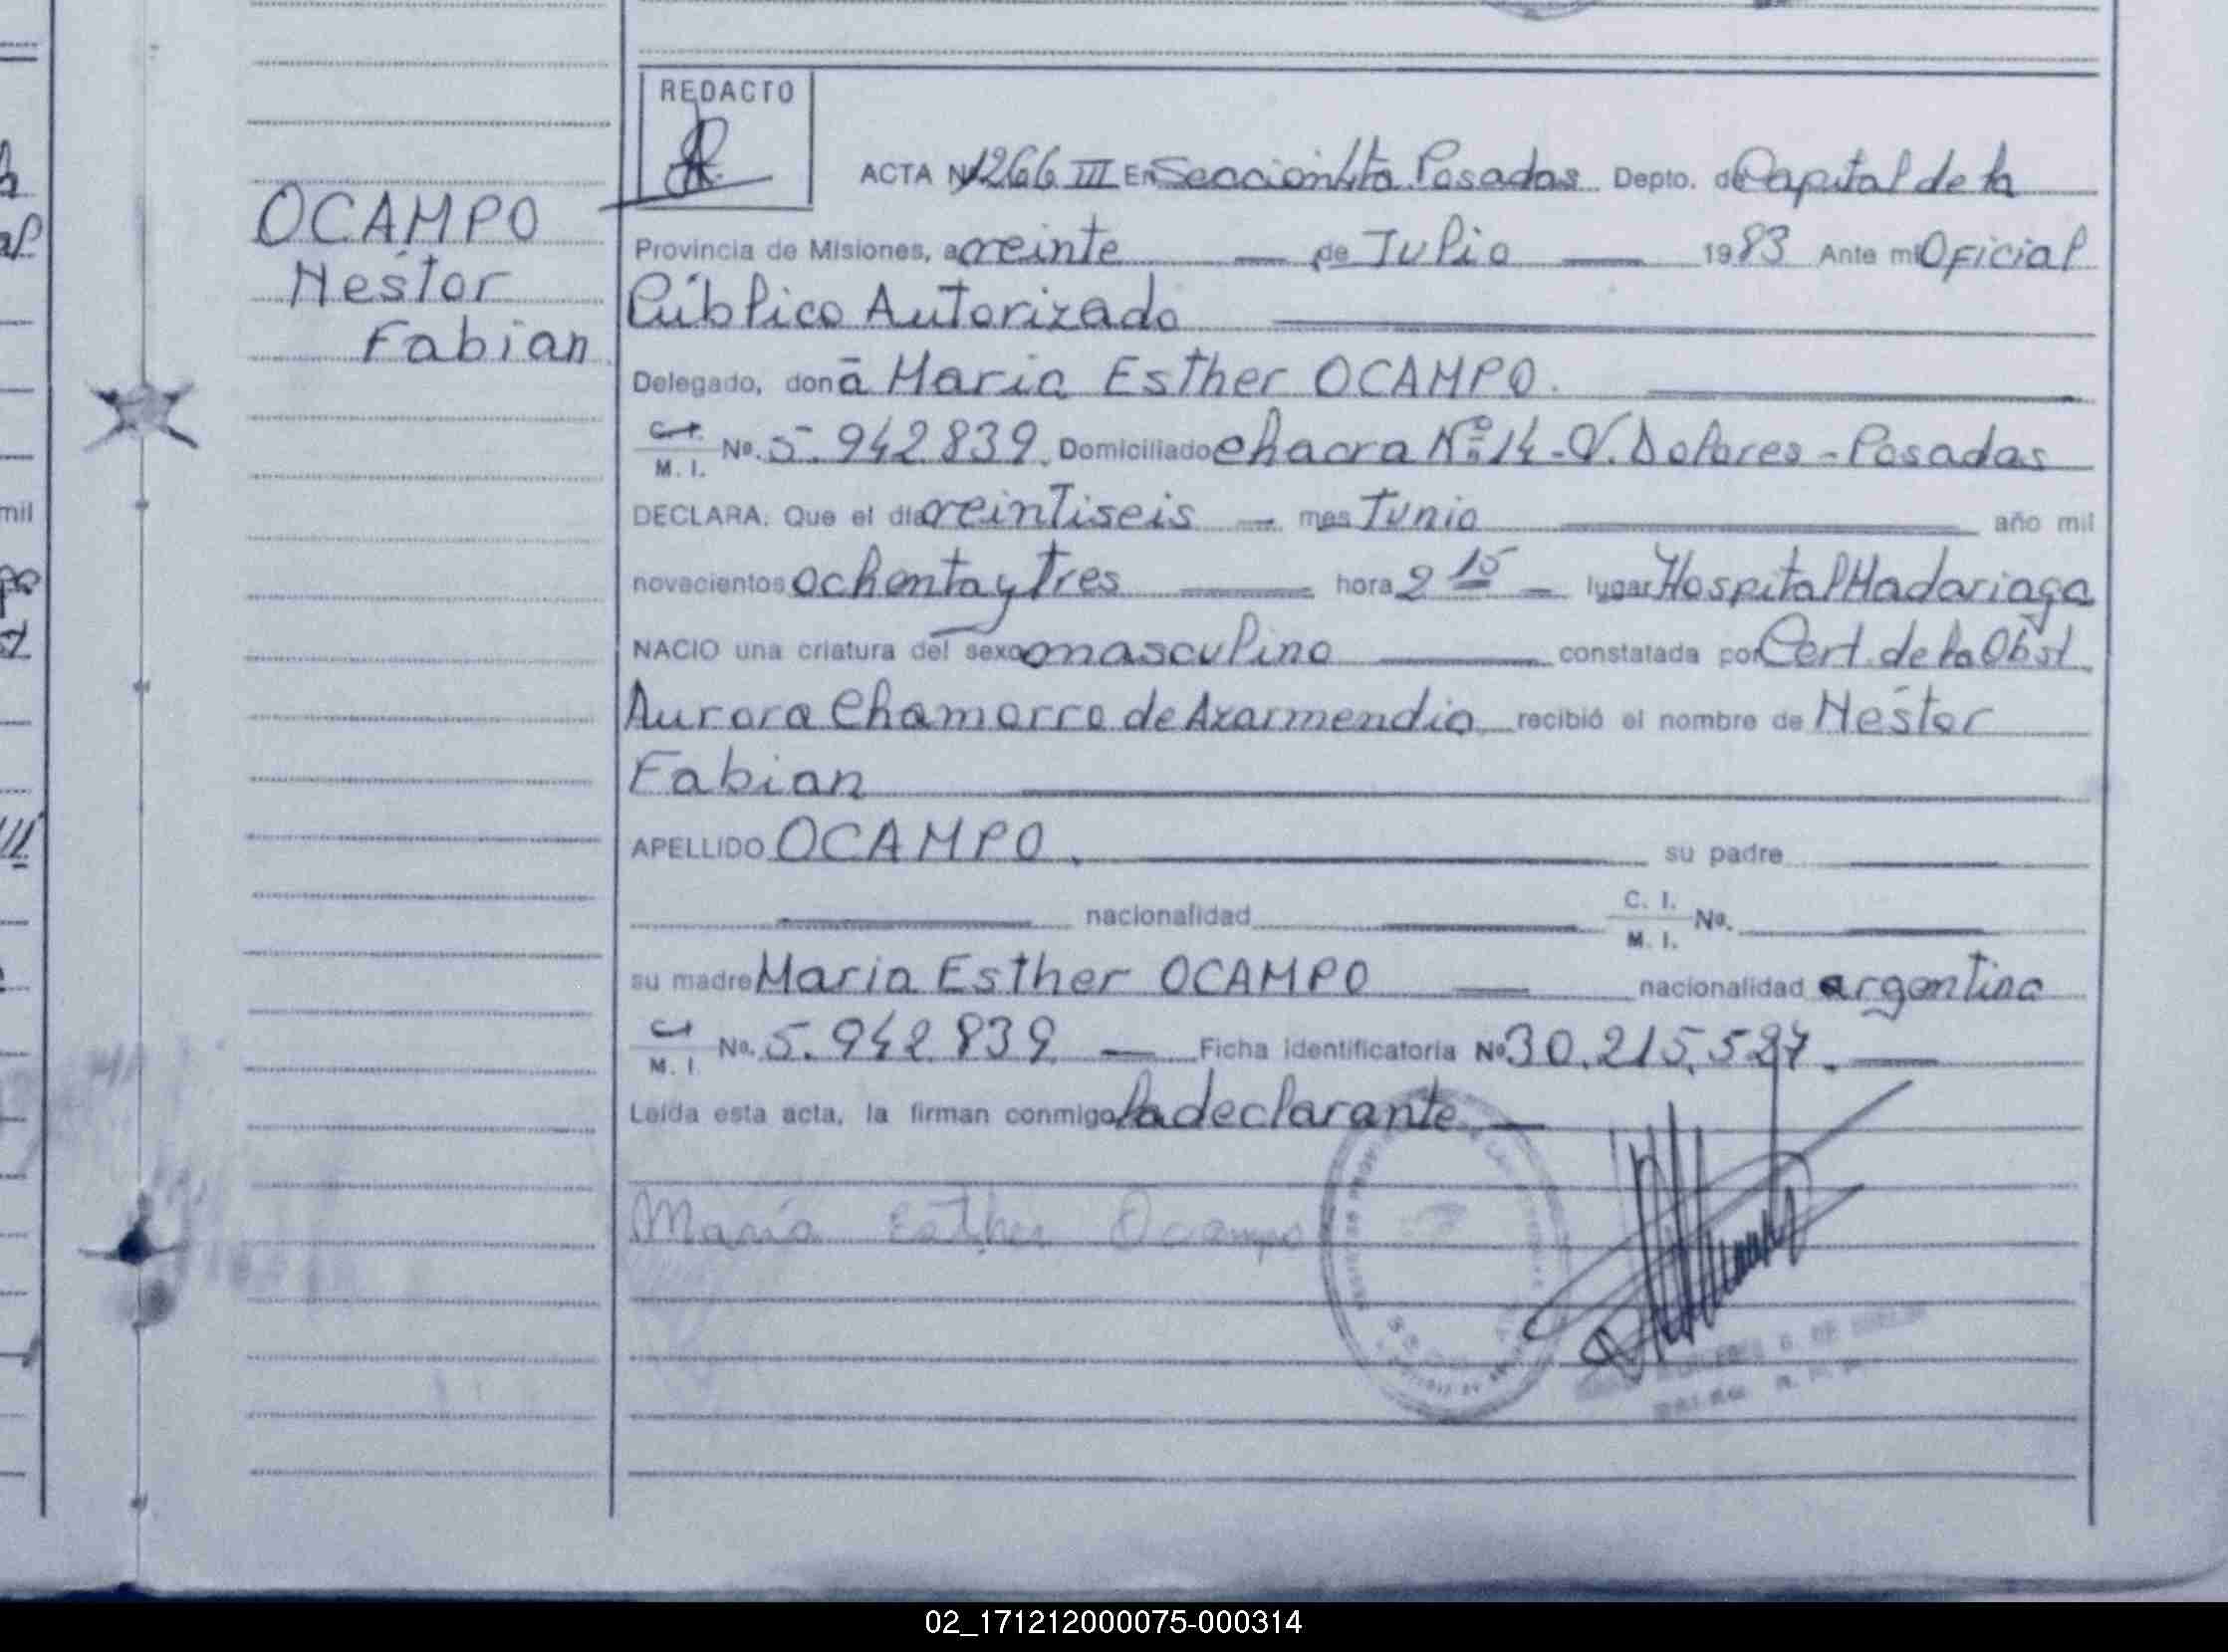 REDACTO
ACTA Nº 1266 III En Sección 4ta Posadas Depto. de Capital de la
OCAMPO
Provincia de Misiones, a veinte — de Julio — 1983 Ante mi Oficial
Nestor
Público Autorizado
Fabian
Delegado, doña Maria Esther OCAMPO.
C. I. / M. I. No. 5.942.839. Domiciliado chacra Nº 14 - V. Dolores - Posadas
DECLARA: Que el día veintiseis — mes Junio año mil
novecientos ochenta y tres hora 2 15 — lugar Hospital Madariaga
NACIO una criatura del sexo masculino constatada por Cert. de la Obst.
Aurora Chamorro de Azarmendia recibió el nombre de Nestor
Fabian
APELLIDO OCAMPO. su padre
nacionalidad C. I. / M. I. No.
su madre Maria Esther OCAMPO — nacionalidad argentina
C. I. / M. I. No. 5.942.839 — Ficha identificatoria Nº 30.215.527.
Leída esta acta, la firman conmigo la declarante —
María Esther Ocampo
mil
02_171212000075-000314